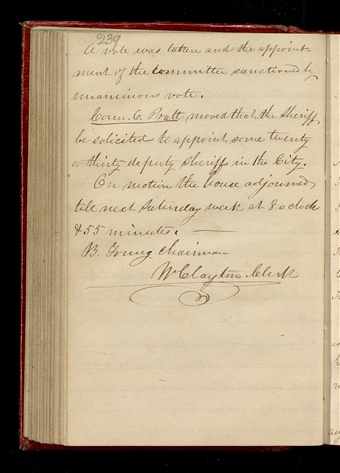 239
A vote was taken and the appoint-
ment of the committee sanctioned by
unanimous vote.
Coun. O. Pratt moved that the Sheriff,
be solicited to appoint some twenty
or thirty deputy Sheriffs in the City.
On motion the house adjourned,
till next Saturday week at 8 o clock
& 55 minutes.
B. Young Chairman
W Clayton. Clerk